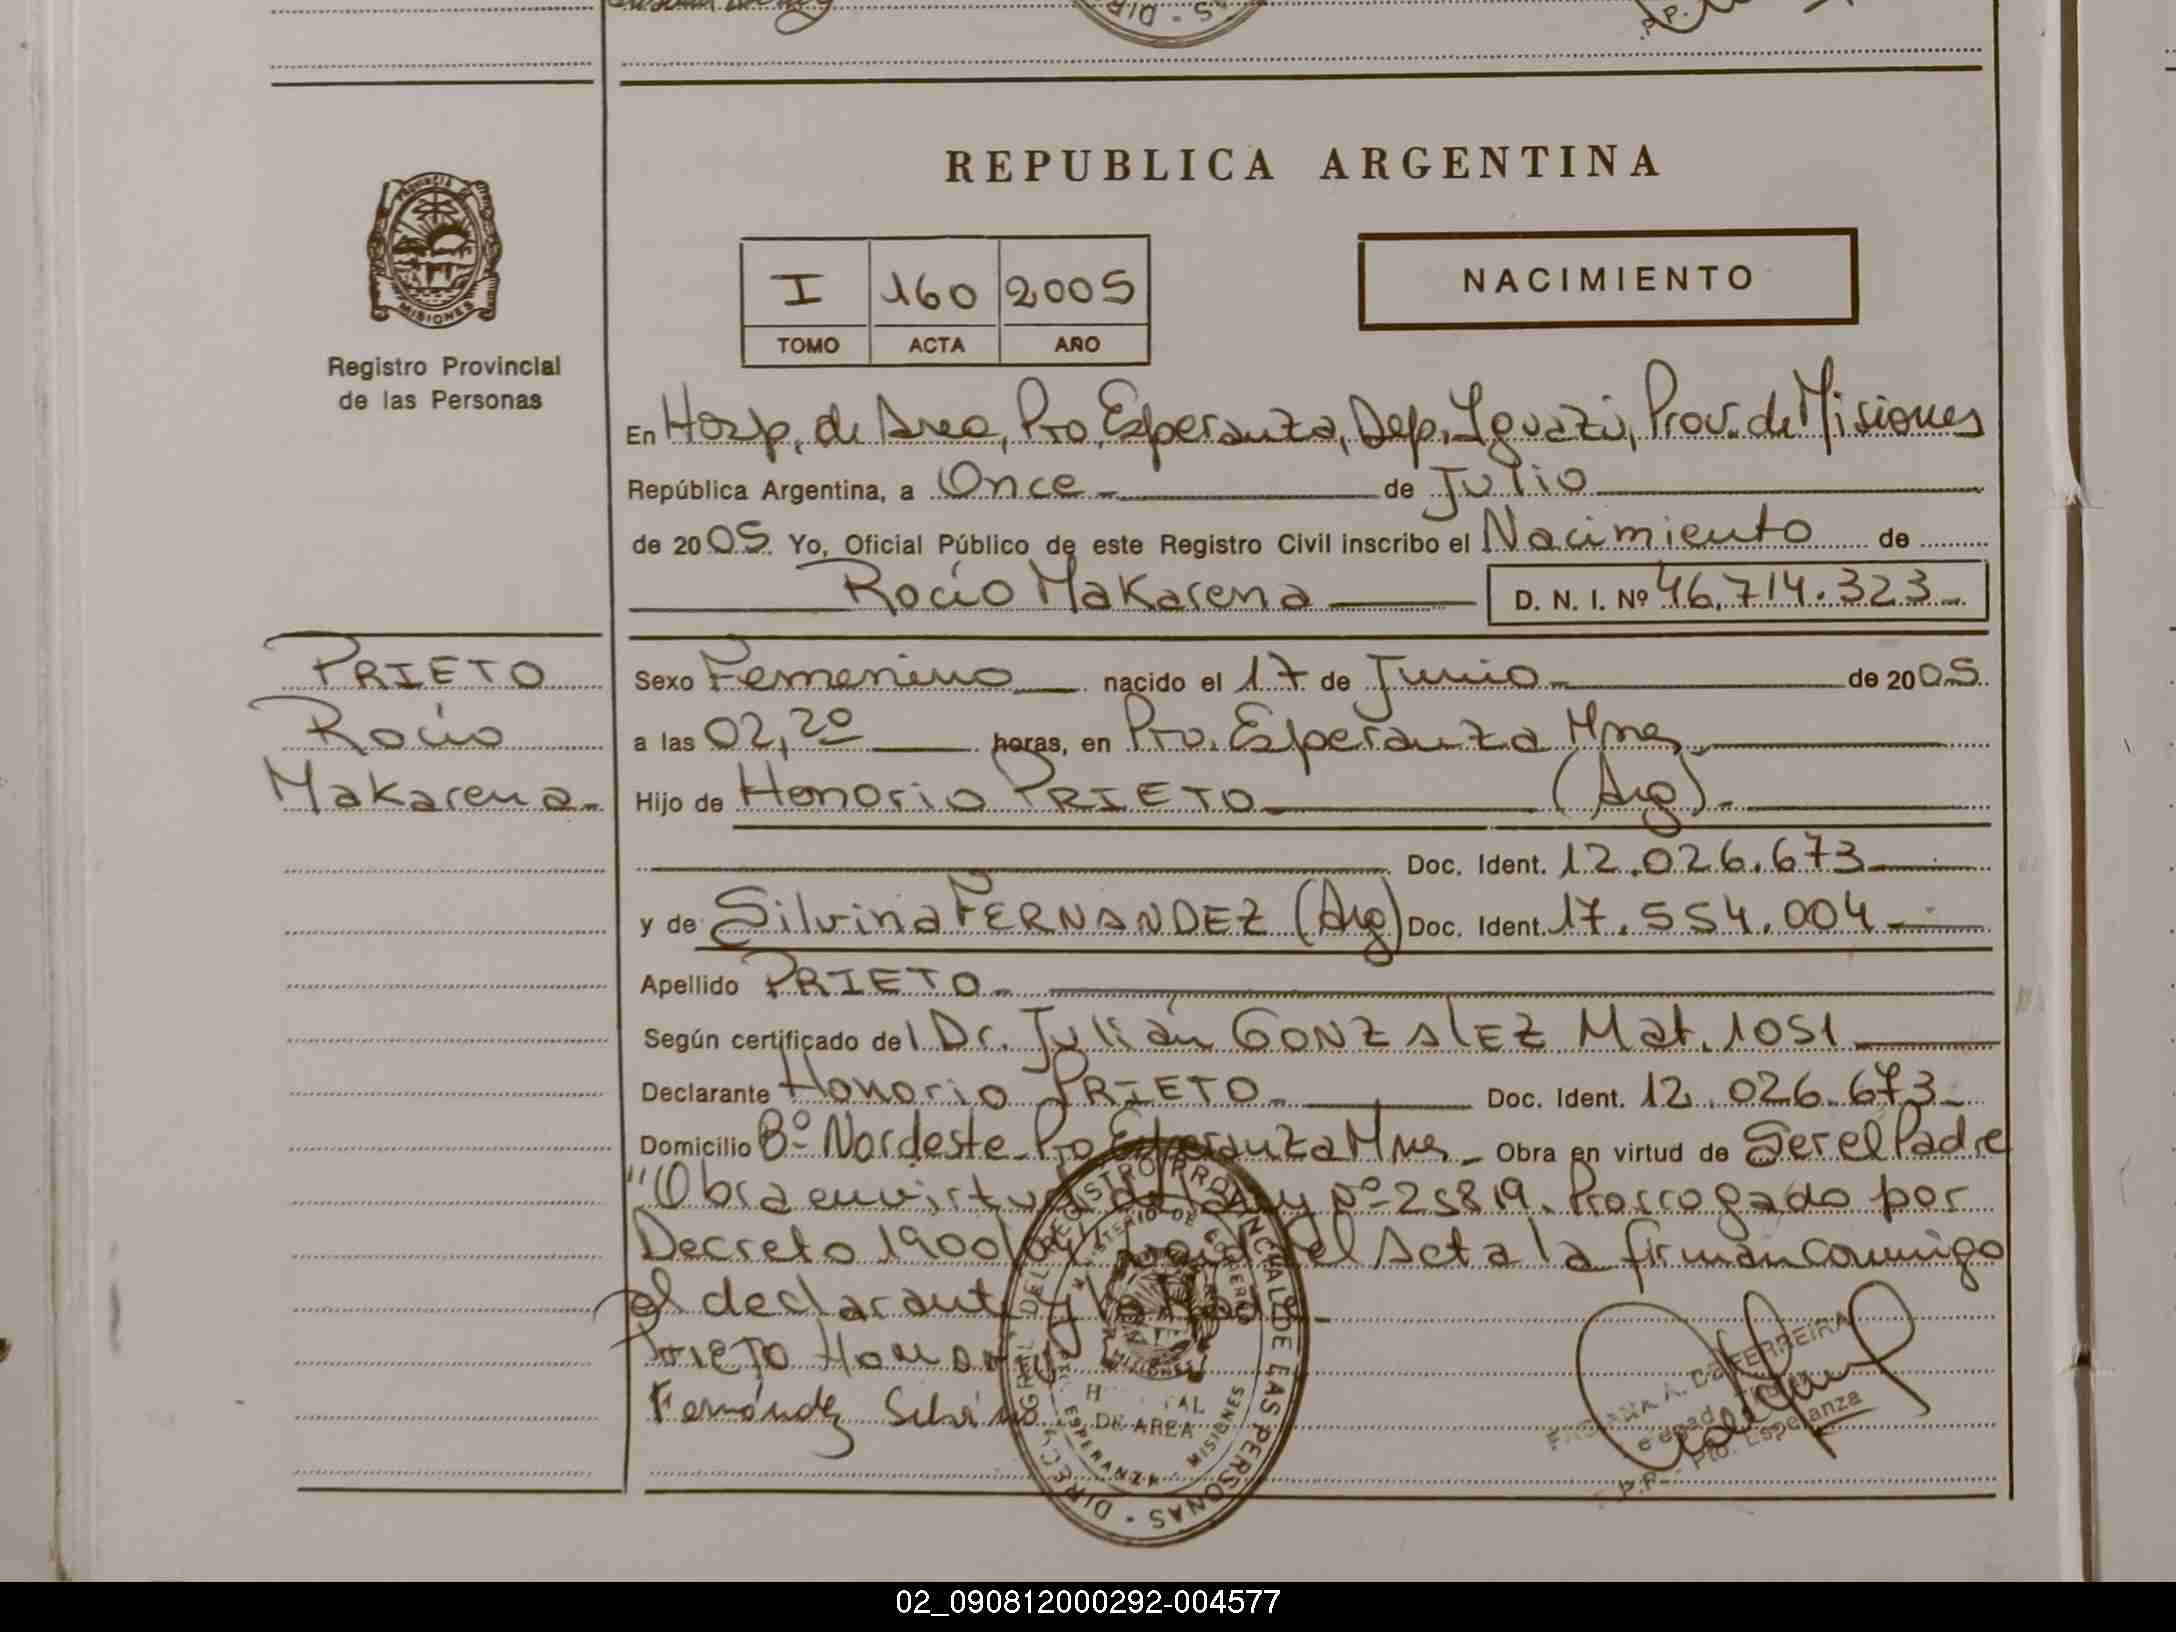 REPUBLICA ARGENTINA
PROVINCIA DE
MISIONES
Registro Provincial
de las Personas
I 160 2005
TOMO ACTA AÑO
NACIMIENTO
En Hosp. de Area, Pto. Esperanza, Dep. Iguazú, Prov. de Misiones
República Argentina, a Once de Julio
de 2005 Yo, Oficial Público de este Registro Civil inscribo el Nacimiento de
Rocío Makarena D. N. I. Nº 46.714.323
PRIETO
Rocío
Makarena
Sexo Femenino nacido el 17 de Junio de 2005
a las 02,20 horas, en Pto. Esperanza Mnes
Hijo de Honorio PRIETO (Arg)
Doc. Ident. 12.026.673
y de Silvina FERNANDEZ (Arg) Doc. Ident. 17.554.004
Apellido PRIETO
Según certificado del Dr. Julián GONZALEZ Mat. 1051
Declarante Honorio PRIETO Doc. Ident. 12.026.673
Domicilio Bº Nordeste Pto Esperanza Mnes Obra en virtud de Ser el Padre
"Obra en virtud de la Ley Nº 25819. Prorrogado por
Decreto 1900/ del Acta la firman conmigo
el declarante y la Madre
PRIETO Honorio
Fernández Silvina
DIRECCION GRAL. DEL REGISTRO PROVINCIAL DE LAS PERSONAS
MINISTERIO DE GOBIERNO
MISIONES
DE AREA
ESPERANZA - MISIONES
A. DE FERREIRA
Pto. Esperanza
02_090812000292-004577